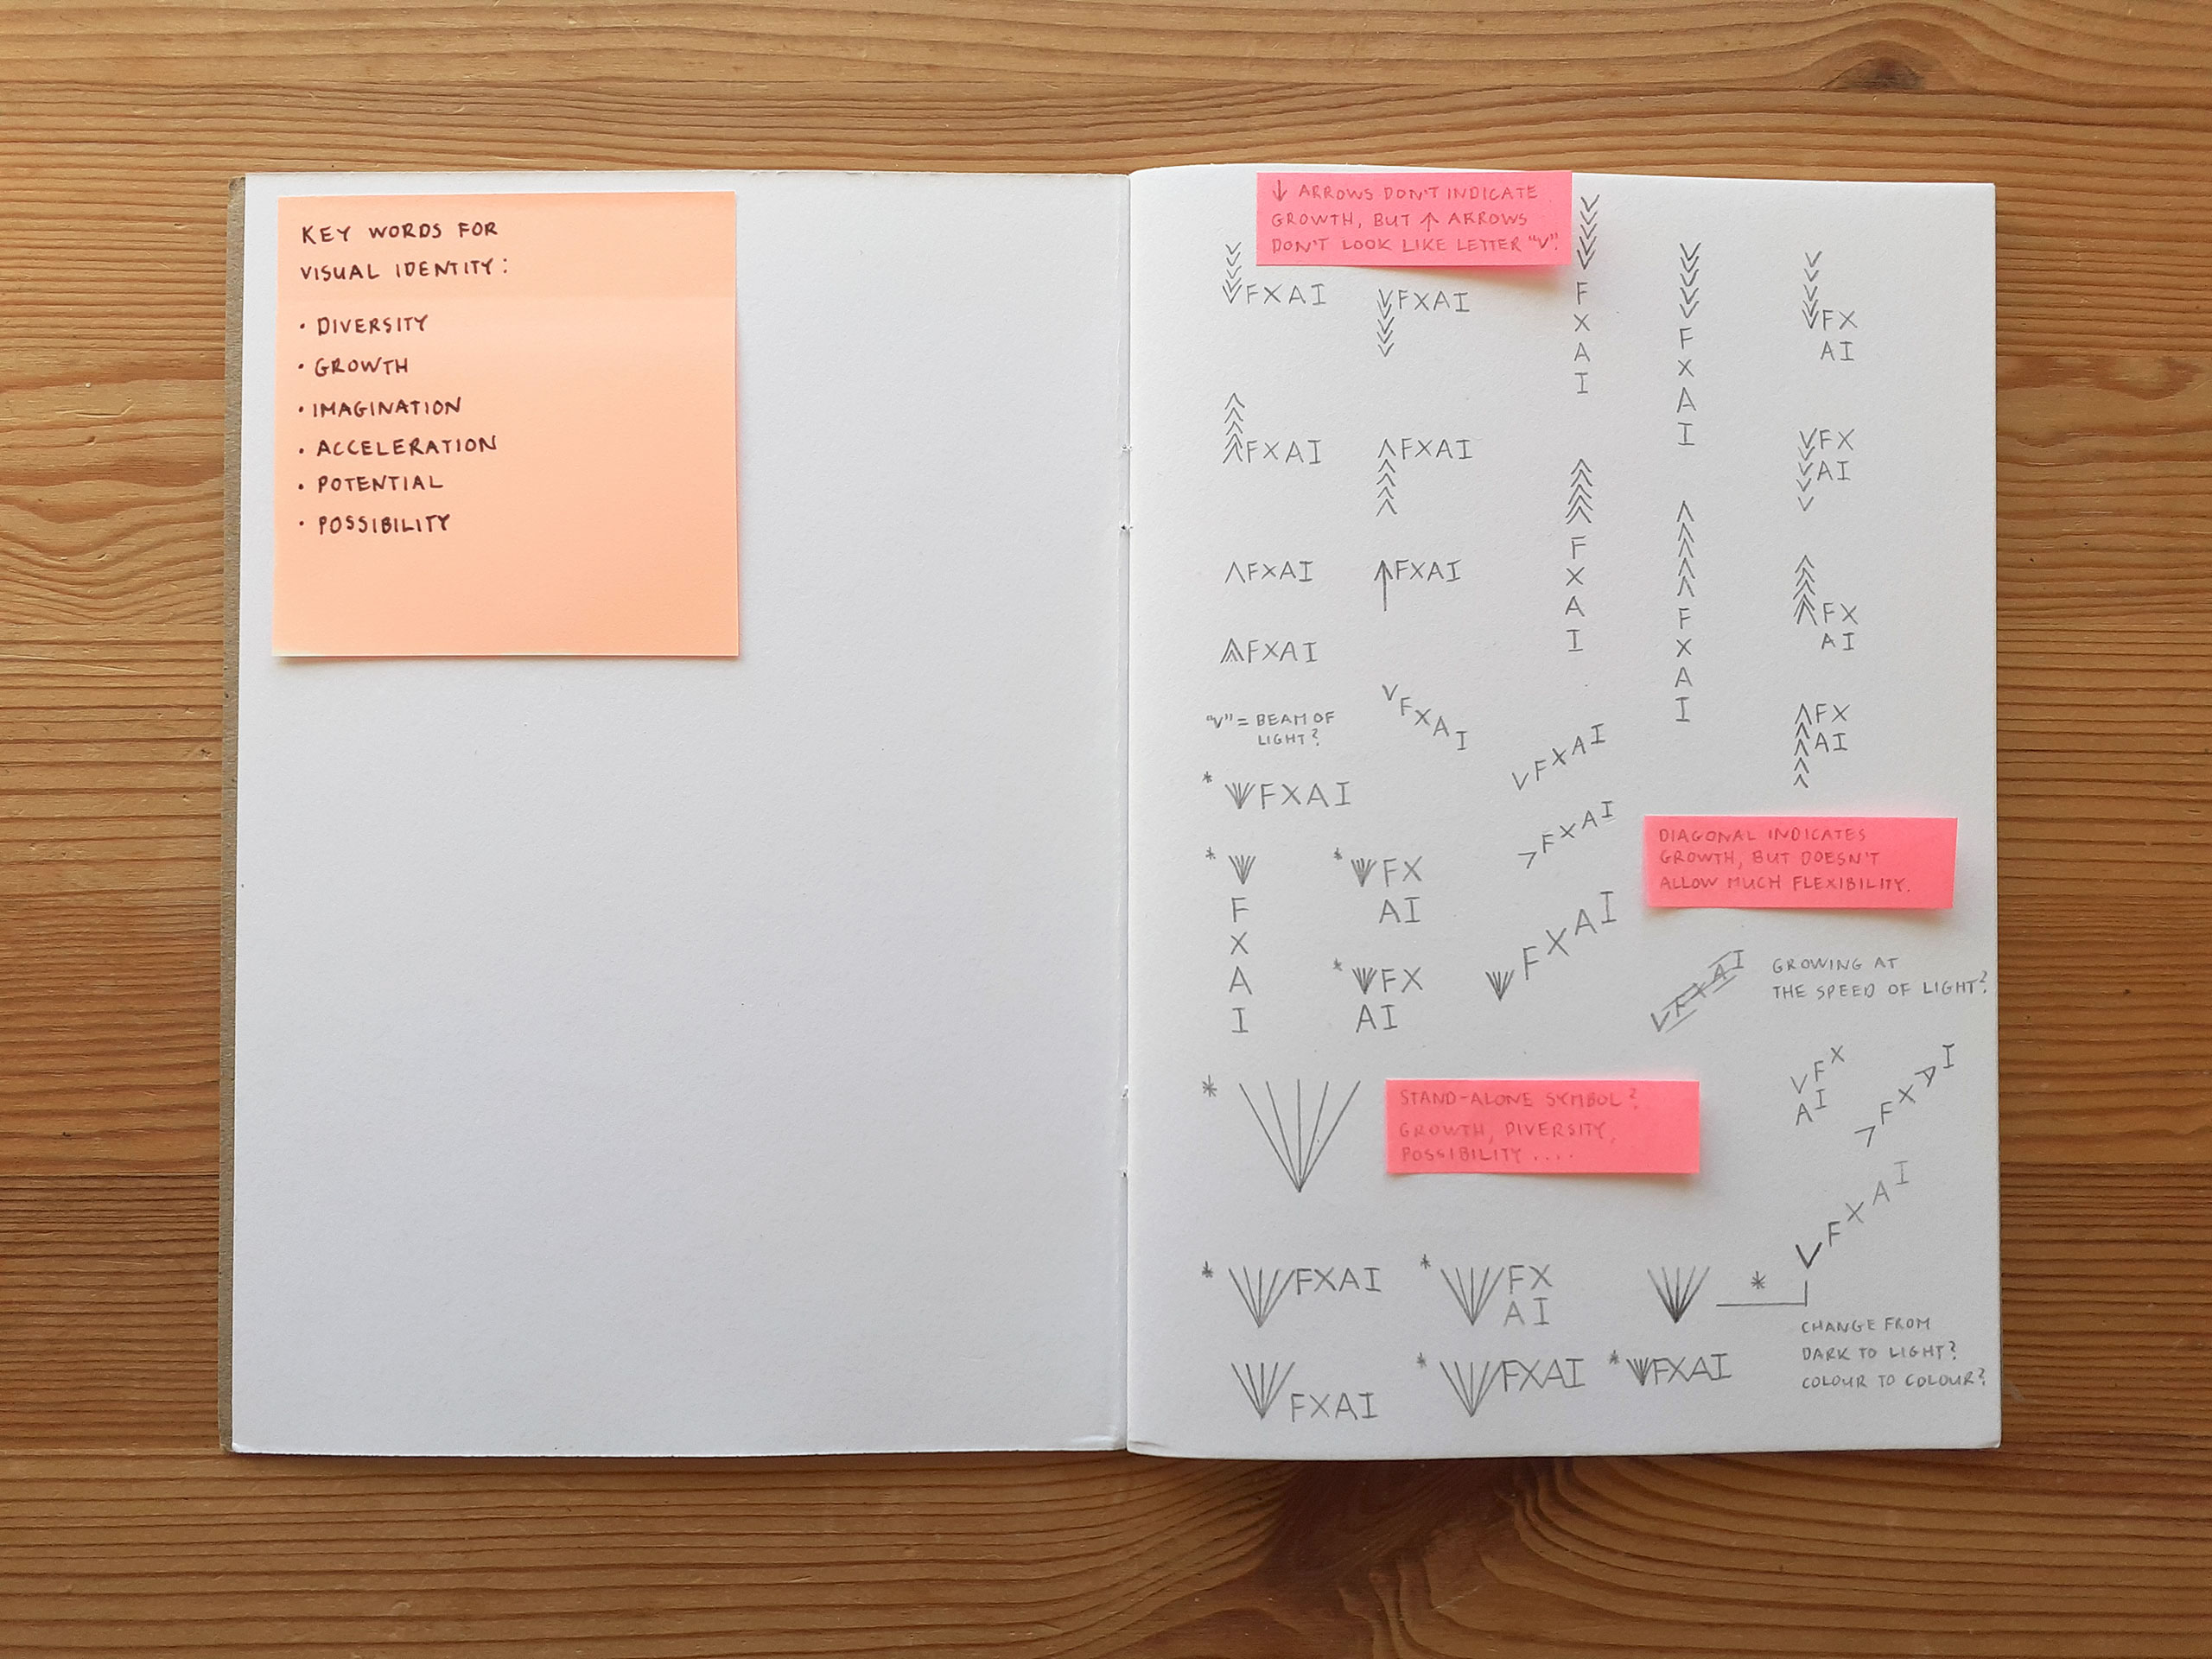 KEY WORDS FOR
VISUAL IDENTITY:
• DIVERSITY
• GROWTH
• IMAGINATION
• ACCELERATION
• POTENTIAL
• POSSIBILITY
↓ ARROWS DON'T INDICATE
GROWTH, BUT ↑ ARROWS
DON'T LOOK LIKE LETTER "V".
VFXAI
VFXAI
F
X
A
I
F
X
A
I
VFX
AI
FXAI
FXAI
F
X
A
I
F
X
A
I
VFX
AI
FXAI
FXAI
FX
AI
FXAI
FX
AI
"V" = BEAM OF
LIGHT?
VFXAI
VFXAI
VFXAI
* VFXAI
* V
F
X
A
I
* VFX
AI
* VFX
AI
VFXAI
DIAGONAL INDICATES
GROWTH, BUT DOESN'T
ALLOW MUCH FLEXIBILITY.
VFXAI
GROWING AT
THE SPEED OF LIGHT?
*
STAND-ALONE SYMBOL?
GROWTH, DIVERSITY,
POSSIBILITY ....
VFX
AI
VFXAI
VFXAI
* VFXAI
* VFX
AI
*
CHANGE FROM
DARK TO LIGHT?
COLOUR TO COLOUR?
VFXAI
* VFXAI
* VFXAI